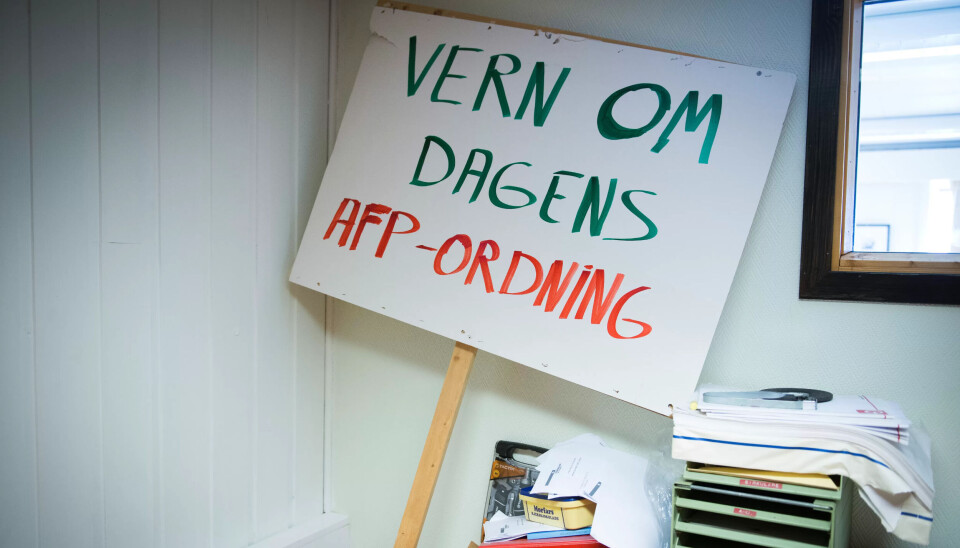 VERN OM
DAGENS
AFP-ORDNING